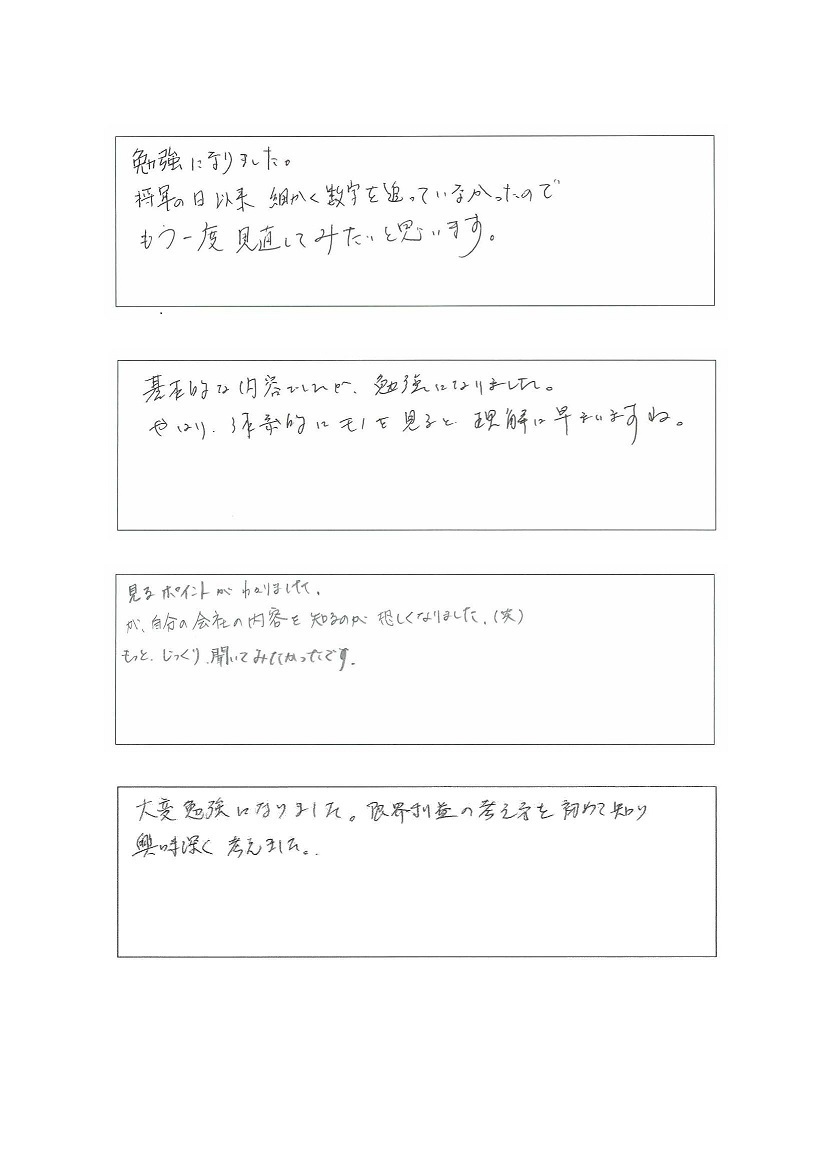 勉強になりました。
将軍の日以来 細かく数字を追っていなかったので
もう一度 見直してみたいと思います。
基本的な内容でしたが、勉強になりました。
やはり、体系的にモノを見ると 理解は早まいますね。
見るポイントがわかりました。
が、自分の会社の内容を知るのが恐しくなりました。(笑)
もっと、じっくり、聞いてみたかったです。
大変勉強になりました。限界利益の考え方を初めて知り
興味深く 考えました。